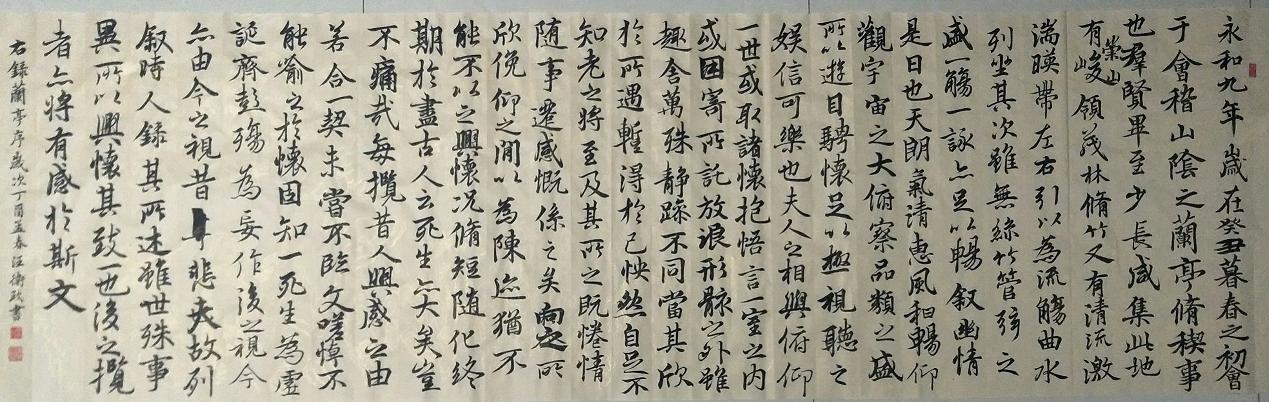 永和九年歲在癸丑暮春之初會
于會稽山陰之蘭亭脩稧事
也羣賢畢至少長咸集此地
有崇山峻領茂林脩竹又有清流激
湍暎帶左右引以為流觴曲水
列坐其次雖無絲竹管弦之
盛一觴一詠亦足以暢敘幽情
是日也天朗氣清惠風和暢仰
觀宇宙之大俯察品類之盛
所以遊目騁懷足以極視聽之
娛信可樂也夫人之相與俯仰
一世或取諸懷抱悟言一室之內
或因寄所託放浪形骸之外雖
趣舍萬殊靜躁不同當其欣
於所遇暫得於己怏然自足不
知老之將至及其所之既惓情
隨事遷感慨係之矣向之所
欣俛仰之閒以為陳迹猶不
能不以之興懷況脩短隨化終
期於盡古人云死生亦大矣豈
不痛哉每攬昔人興感之由
若合一契未嘗不臨文嗟悼不
能喻之於懷固知一死生為虛
誕齊彭殤為妄作後之視今
亦由今之視昔悲夫故列
敘時人錄其所述雖世殊事
異所以興懷其致一也後之攬
者亦將有感於斯文
右錄蘭亭序歲次丁酉孟春汪衛書